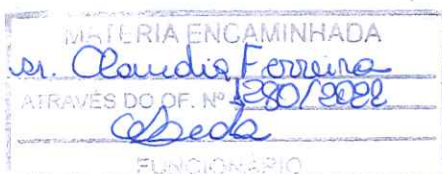 MATÉRIA ENCAMINHADA
sr. Claudia Ferreira
ATRAVÉS DO OF. Nº 1280/2022
FUNCIONÁRIO